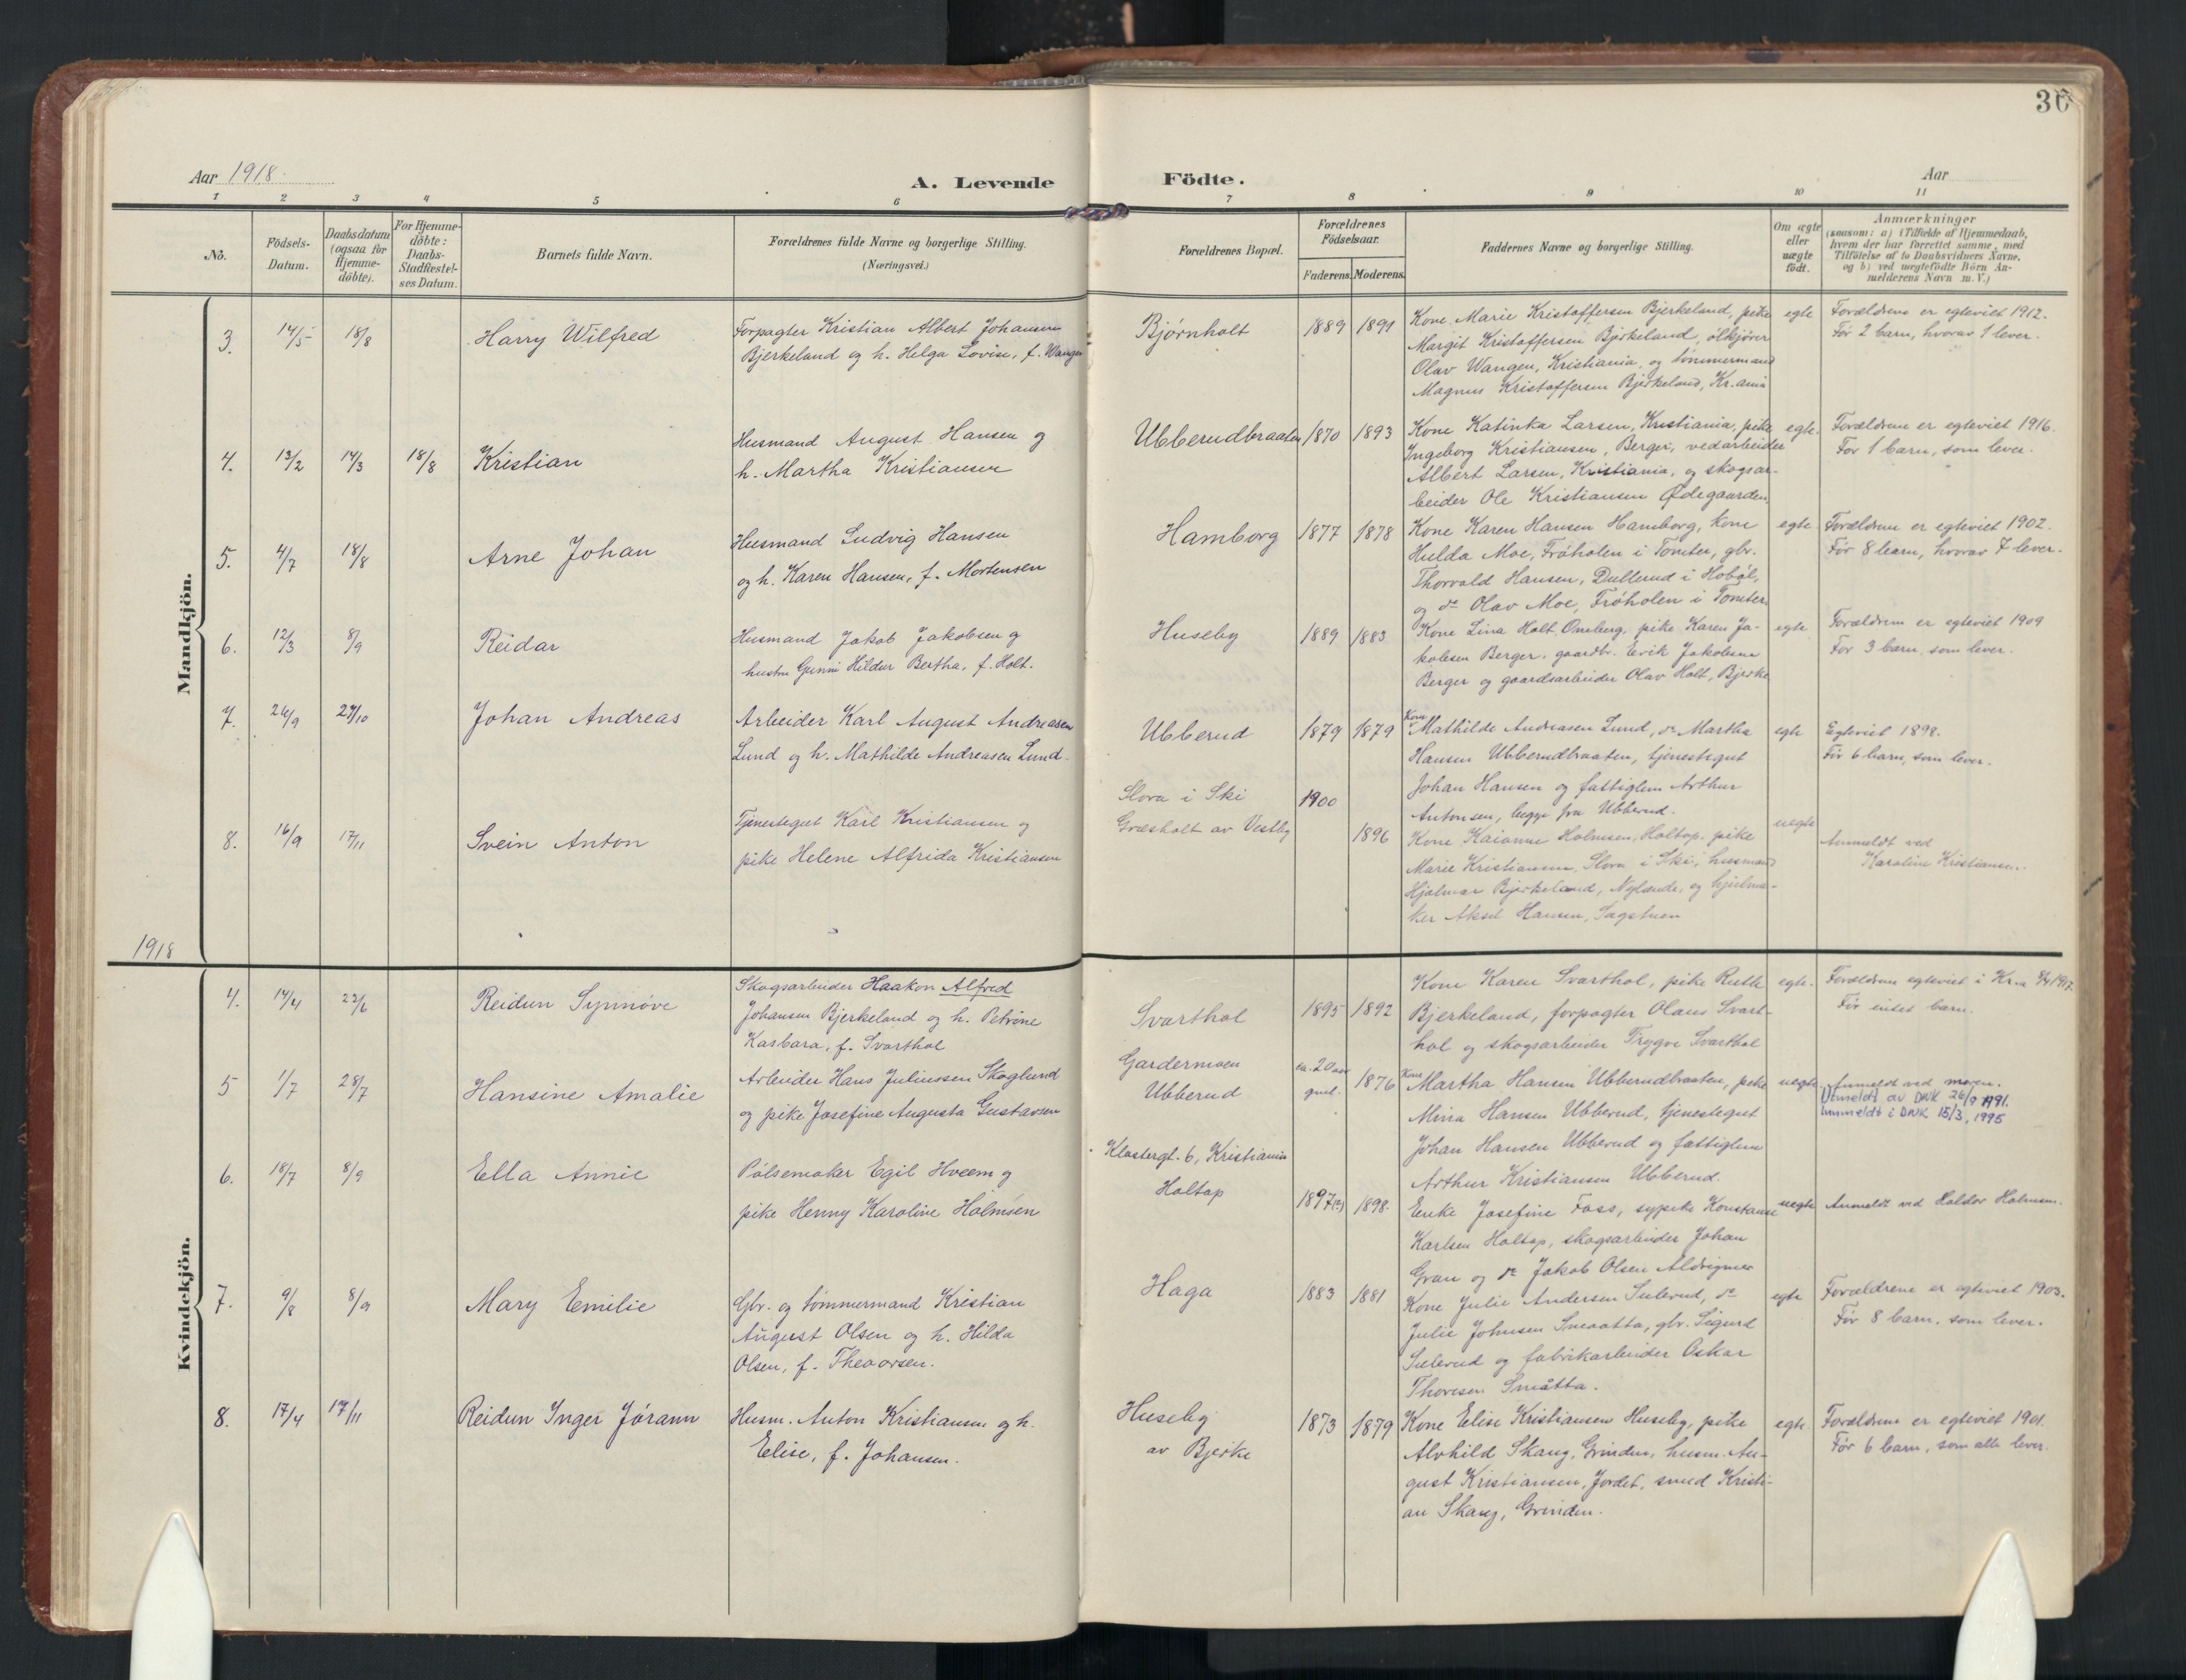 36
Aar 1918.
A. Levende Födte.
Aar
1 2 3 4 5 6 7 8 9 10 11
No.
Födsels-
Datum.
Daabsdatum
(ogsaa for
Hjemme-
döbte).
For Hjemme-
döbte:
Daabs-
Stadfæstel-
ses Datum.
Barnets fulde Navn.
Forældrenes fulde Navne og borgerlige Stilling.
(Næringsvei.)
Forældrenes Bopæl.
Forældrenes
Födselsaar.
Faderens. Moderens.
Faddernes Navne og borgerlige Stilling.
Om ægte
eller
uægte
födt.
Anmærkninger
(saasom: a) i Tilfælde af Hjemmedaab,
hvem der har forrettet samme, med
Tilföielse af to Daabsvidners Navne,
og b) ved uægtefödte Börn An-
melderens Navn m. V.)
Mandkjön.
3. 14/5 18/8 Harry Wilfred
Forpagter Kristian Albert Johansen
Bjerkeland og h. Helga Lovise, f. Wangen
Bjørnholt 1889 1891
Kone Marie Kristoffersen Bjerkeland, pike
Margit Kristoffersen Bjerkeland, ølkjører
Olav Wangen, Kristiania, og tømmermand
Magnus Kristoffersen Bjerkeland, Kr.ania
egte
Forældrene er egteviet 1912.
Før 2 barn, hvorav 1 lever.
4. 13/2 14/3 18/8 Kristian
Husmand August Hansen og
h. Martha Kristiansen
Ubberudbraaten 1870 1893
Kone Katinka Larsen, Kristiania, pike
Ingeborg Kristiansen, Berger, vedarbeider
Albert Larsen, Kristiania, og skogsar-
beider Ole Kristiansen Ødegaarden.
egte.
Forældrene er egteviet 1916.
Før 1 barn, som lever.
5. 4/7 18/8 Arne Johan
Husmand Ludvig Hansen
og h. Karen Hansen, f. Mortensen
Hamborg 1877 1878
Kone Karen Hansen Hamborg, kone
Hulda Moe, Frøholen i Tomter, gbr.
Thorvald Hansen, Dullerud i Hobøl,
og do Olav Moe, Frøholen i Tomter.
egte
Forældrene er egteviet 1902.
Før 8 barn, hvorav 7 lever.
6. 12/3 8/9 Reidar
Husmand Jakob Jakobsen og
hustru Gunni Hildur Bertha, f. Holt.
Huseby 1889 1883
Kone Lina Holt, Oneberg, pike Karen Ja-
kobsen Berger, gaardbr. Erik Jakobsen
Berger og gaardsarbeider Olav Holt, Bjerke
egte
Forældrene er egteviet 1909
Før 3 barn, som lever.
7. 26/9 27/10 Johan Andreas
Arbeider Karl August Andreasen
Lund og h. Mathilde Andreasen Lund.
Ubberud 1879 1879
Kone Mathilde Andreasen Lund, do Martha
Hansen Ubberudbraaten, tjenestegut
Johan Hansen og fattiglem Arthur
Antonsen, begge fra Ubberud.
egte
Egteviet 1898.
Før 6 barn, som lever.
8. 16/9 17/11 Svein Anton
Tjenestegut Karl Kristiansen og
pike Helene Alfrida Kristiansen
Slora i Ski 1900
Græsholt av Vestby 1896
Kone Kaianne Holmsen, Holtop, pike
Marie Kristiansen, Slora i Ski, husmand
Hjalmar Bjerkeland, Nylænde, og hjulma-
ker Aksel Hansen, Sagstuen
uegte
Anmeldt ved
Karoline Kristiansen.
1918
Kvindekjön.
4. 14/4 23/6 Reidun Synnøve
Skogsarbeider Haakon Alfred
Johansen Bjerkeland og h. Petrine
Kasbara, f. Svarthol
Svarthol 1895 1892
Kone Karen Svarthol, pike Ruth
Bjerkeland, forpagter Olaus Svart-
hol og skogsarbeider Trygve Svarthol
egte.
Forældrene egteviet i Kr.a 1917.
Før intet barn.
5 1/7 28/7 Hansine Amalie
Arbeider Hans Juliussen Skoglund
og pike Josefine Augusta Gustavsen
Gardermoen ca. 20 aar
Ubberud gml. 1876
Kone Martha Hansen Ubberudbraaten, pike
Mina Hansen Ubberud, tjenestegut
Johan Hansen Ubberud og fattiglem
Arthur Kristiansen Ubberud.
uegte.
Anmeldt ved moren.
Utmeldt av DNK 26/9 1991.
Innmeldt i DNK 15/3, 1995
6. 18/7 8/9 Ella Annie
Pølsemaker Egil Hveem og
pike Henny Karoline Holmsen
Klostergt. 6, Kristiania
Holtop 1897(?) 1898.
Enke Josefine Foss, sypike Konstanse
Karlsen Holtop, skogsarbeider Johan
Gran og do Jakob Olsen Aldrigmer
uegte
Anmeldt ved Haldor Holmsen.
7. 9/8 8/9 Mary Emilie
Gbr. og tømmermand Kristian
August Olsen og h. Hilda
Olsen, f. Theoorsen.
Haga 1883 1881
Kone Julie Andersen Sulerud, do
Julie Johnsen Smaatta, gbr. Sigurd
Sulerud og fabrikarbeider Oskar
Thoresen Småtta.
egte
Forældrene er egteviet 1903.
Før 8 barn, som lever.
8. 17/4 17/11 Reidun Inger Jórann
Husm. Anton Kristiansen og h.
Elise, f. Johansen.
Huseby
av Bjerke 1873 1879
Kone Elise Kristiansen Huseby, pike
Alvhild Skaug, Grinden, husm. Au-
gust Kristiansen, Jordet, smed Kristi-
an Skaug, Grinden.
egte.
Forældrene er egteviet 1901.
Før 6 barn, som alle lever.